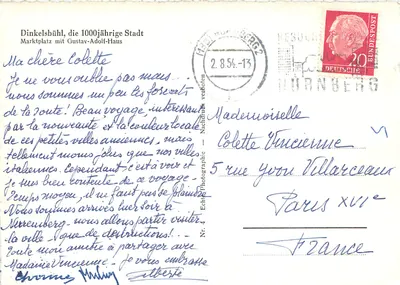 Dinkelsbühl, die 1000jährige Stadt
Marktplatz mit Gustav-Adolf-Haus
Ma chère Colette
Je ne vous oublie pas mais
nous sommes un peu les forcats
de la route! Beau voyage, intéressant
par la nouveauté et la couleur locale
de ces petites villes anciennes, mais
tellement moins jolies que nos villes
italiennes. Cependant c'était voir et
je suis bien contente de ce voyage.
Temps moyen, il ne faut pas se plaindre
Nous sommes arrivés hier soir à
Nuremberg - nous allons partir visiter
la ville (que de destructions!)
Toute mon amitié à partager avec
Madame Vincienne. Je vous embrasse
Gilberte
2.8.54-13
NÜRNBERG
20
DEUTSCHE
BUNDESPOST
Mademoiselle
Colette Vincienne
5 rue Yvon Villarceaux
Paris XVIe
France